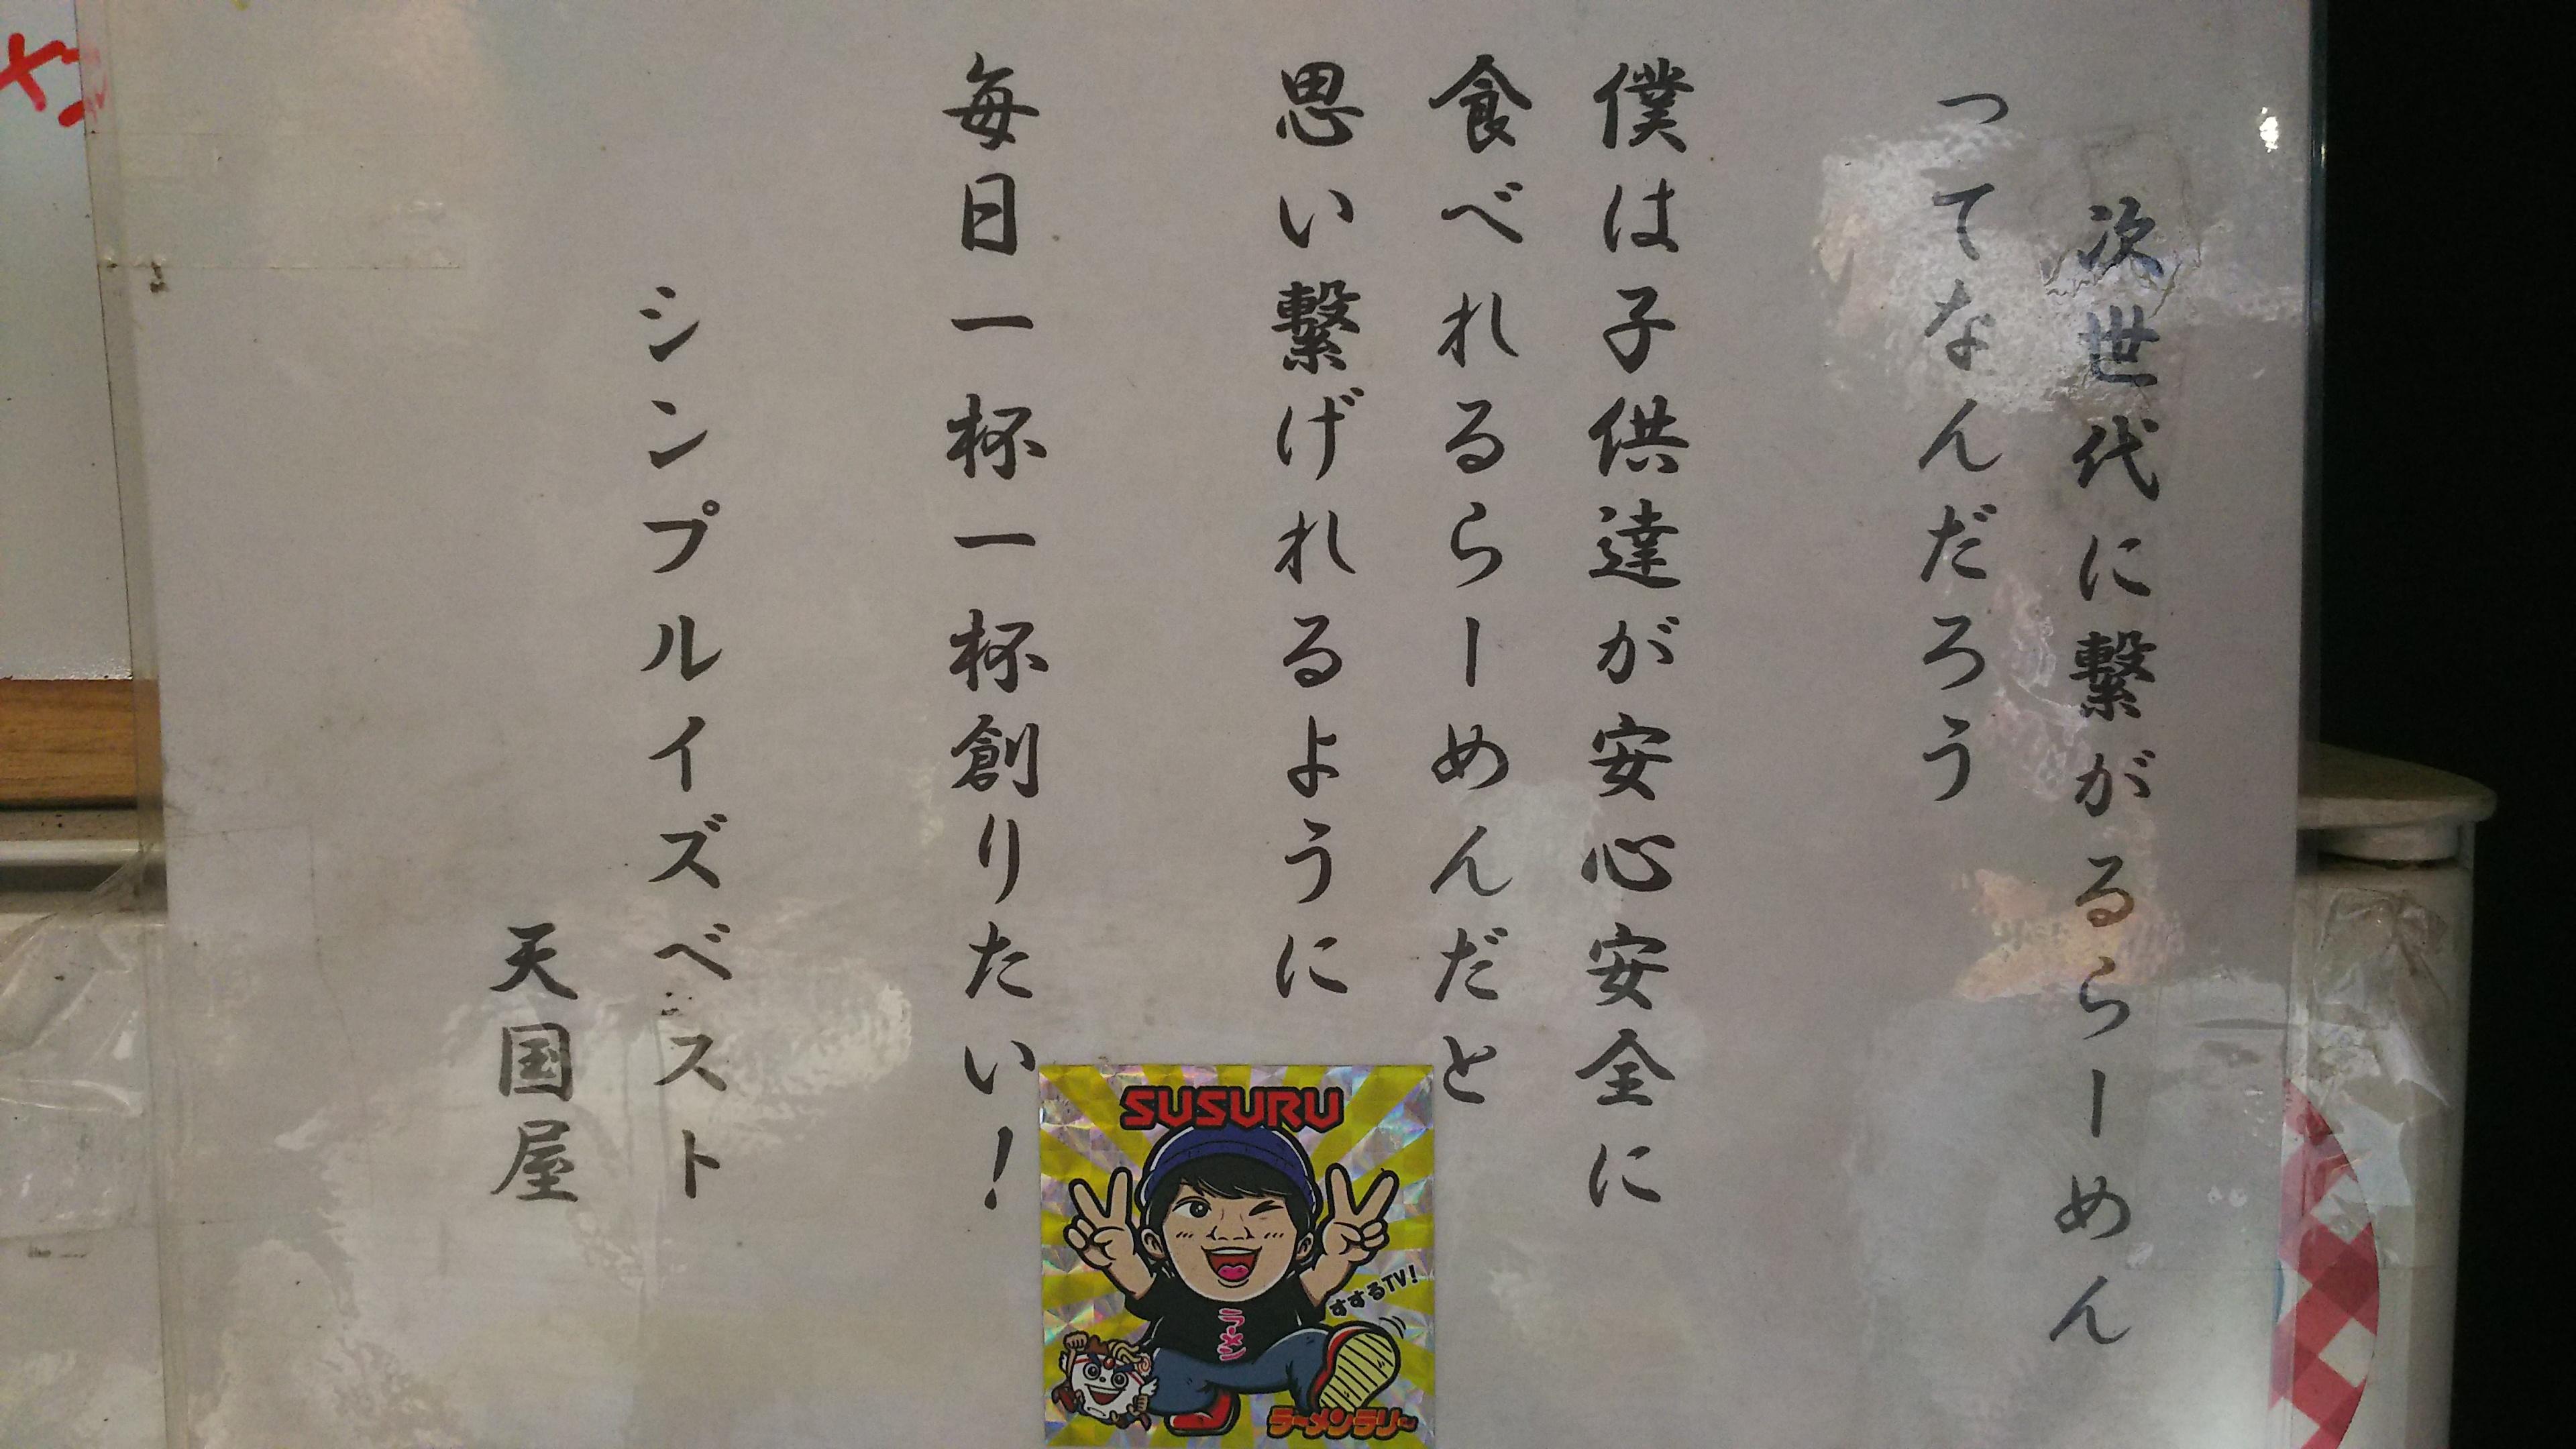 次世代に繋がるらーめん
ってなんだろう
僕は子供達が安心安全に
食べれるらーめんだと
思い繋げれるように
毎日一杯一杯創りたい！
シンプルイズベスト
天国屋
SUSURU
すするTV!
ラーメン
ラーメンラリー